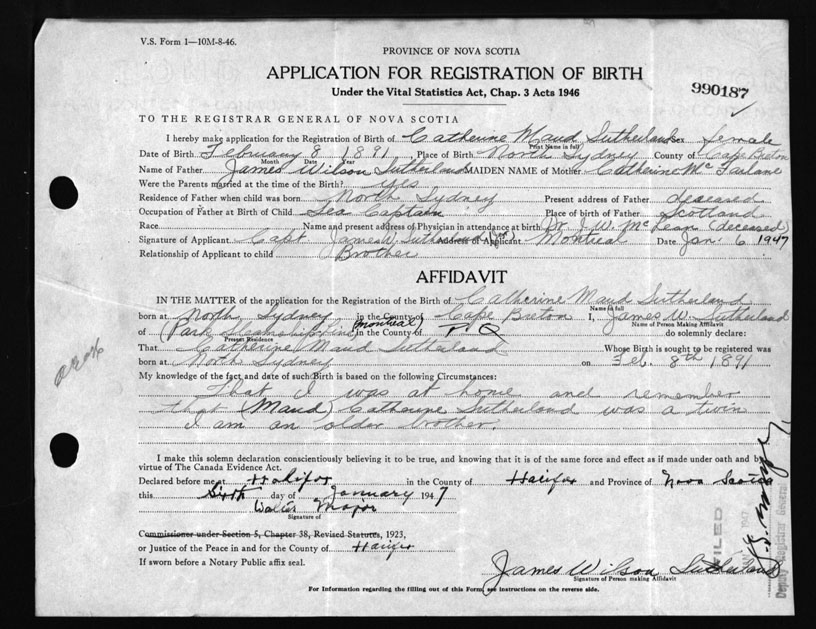 V.S. Form 1—10M-8-46.
PROVINCE OF NOVA SCOTIA
APPLICATION FOR REGISTRATION OF BIRTH
Under the Vital Statistics Act, Chap. 3 Acts 1946
990187
TO THE REGISTRAR GENERAL OF NOVA SCOTIA
I hereby make application for the Registration of Birth of Catherine Maud Sutherland Sex female
Print Name in full
Date of Birth February 8 1891 Place of Birth North Sydney County of Cape Breton
Month Date Year
Name of Father James Wilson Sutherland MAIDEN NAME of Mother Catherine McFarlane
Were the Parents married at the time of the Birth? yes
Residence of Father when child was born North Sydney Present address of Father deceased
Occupation of Father at Birth of Child Sea Captain Place of birth of Father Scotland
Race Name and present address of Physician in attendance at birth Dr. J. W. McLean (deceased)
Signature of Applicant Capt James W. Sutherland Address of Applicant Montreal Date Jan. 6 1947
Relationship of Applicant to child Brother
AFFIDAVIT
IN THE MATTER of the application for the Registration of the Birth of Catherine Maud Sutherland
Name in full
born at North Sydney in the County of Cape Breton I, James W. Sutherland
Name of Person Making Affidavit
of Park Steamship Line Montreal in the County of P Q do solemnly declare:
Present Residence
That Catherine Maud Sutherland Whose Birth is sought to be registered was
born at North Sydney on Feb. 8th 1891
My knowledge of the fact and date of such Birth is based on the following Circumstances:
That I was at home and remember
that (Maud) Catherine Sutherland was a twin
I am an older brother.
I make this solemn declaration conscientiously believing it to be true, and knowing that it is of the same force and effect as if made under oath and by
virtue of The Canada Evidence Act.
Declared before me at Halifax in the County of Halifax and Province of Nova Scotia
this Sixth day of January 1947
Walter Major
Signature of
Commissioner under Section 5, Chapter 38, Revised Statutes, 1923,
or Justice of the Peace in and for the County of Halifax
If sworn before a Notary Public affix seal.
James Wilson Sutherland
Signature of Person making Affidavit
For Information regarding the filling out of this Form, see instructions on the reverse side.
FILED
Deputy Registrar General